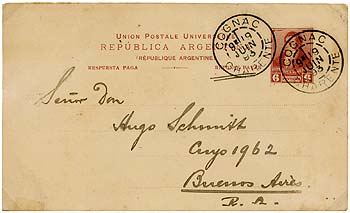 UNION POSTALE UNIVER
REPÚBLICA ARGE
(RÉPUBLIQUE ARGENTINE
RESPUESTA PAGA
COGNAC
19
JUIN
93
CHARENTE
COGNAC
19
JUIN
93
CHARENTE
6 6
Señor Don
Hugo Schmitt
Cuyo 1962
Buenos Aires
R. A.